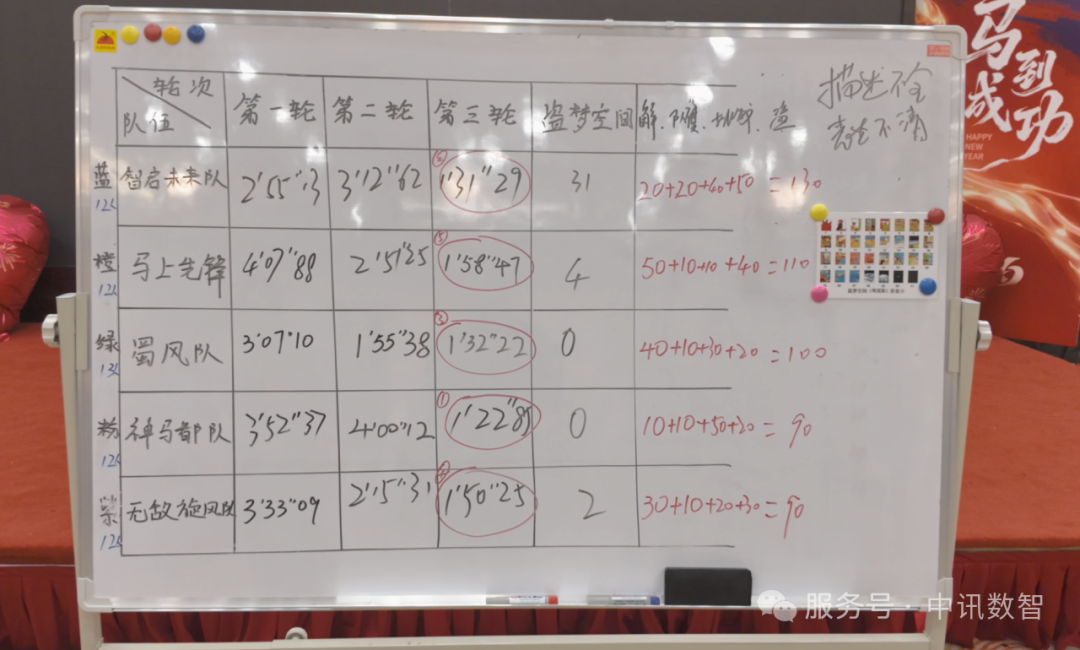 轮次
队伍
第一轮 第二轮 第三轮 盗梦空间 解、
描述不全
表述不清
蓝 12人 智启未来队 2'55"13 3'12"62 1'31"29 31 20+20+40+50=130
橙 12人 马上先锋 4'07"88 2'51"25 ⑤ 1'58"47 4 50+10+10+40=110
绿 13人 蜀风队 3'07"10 1'55"38 ③ 1'32"22 0 40+10+30+20=100
粉 12人 神马都队 3'52"37 4'00"12 ① 1'22"85 0 10+10+50+20=90
紫 12人 无敌旋风队 3'33"09 2'15"31 1'50"25 2 30+10+20+30=90
马到成功
HAPPY
NEW
YEAR
服务号·中讯数智